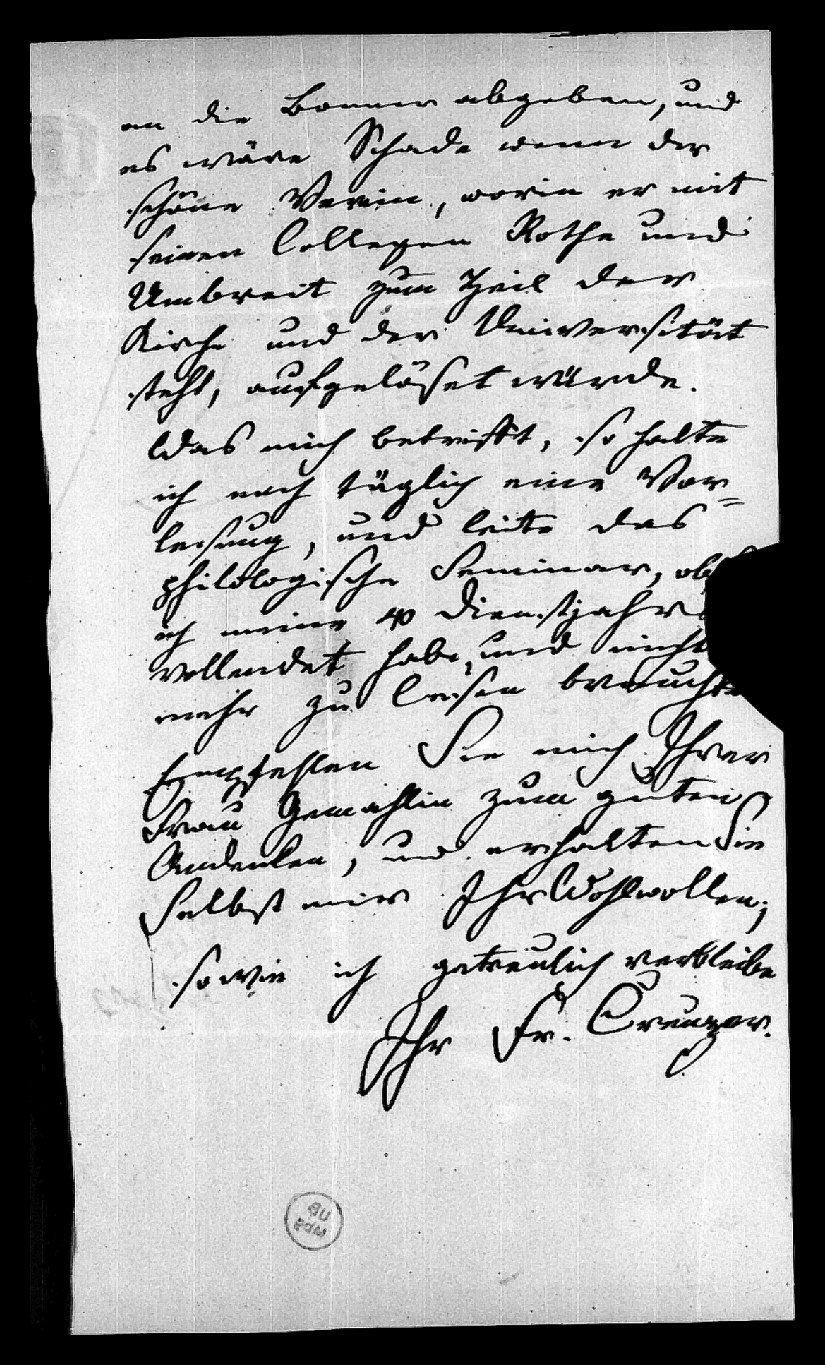 an die Bonner abgeben, und
es wäre Schade wenn der
schöne Verein, worin er mit
seinen Collegen Rothe und
Umbreit zum Theil der
Kirche und der Universität
steht, aufgelöset würde.
Was mich betrifft, so halte
ich noch täglich eine Vor=
lesung, und leite das
philologische Seminar,
ich meine 40 Dienstjahre
vollendet habe, und nicht
mehr zu lesen brauchte
Empfehlen Sie mich Ihrer
Frau Gemahlin zum guten
Andenken, und erhalten Sie
Selbst mir Ihr Wohlwollen;
so wie ich getreulich verbleibe
Ihr Fr. Creuzer.